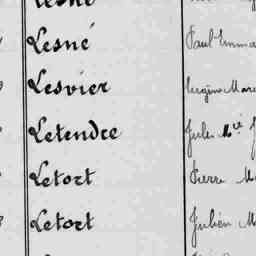 Lesné Paul Emma
Lesvier Eugène Mar
Letendre Jules Mie
Letort Pierre M
Letort Julien M